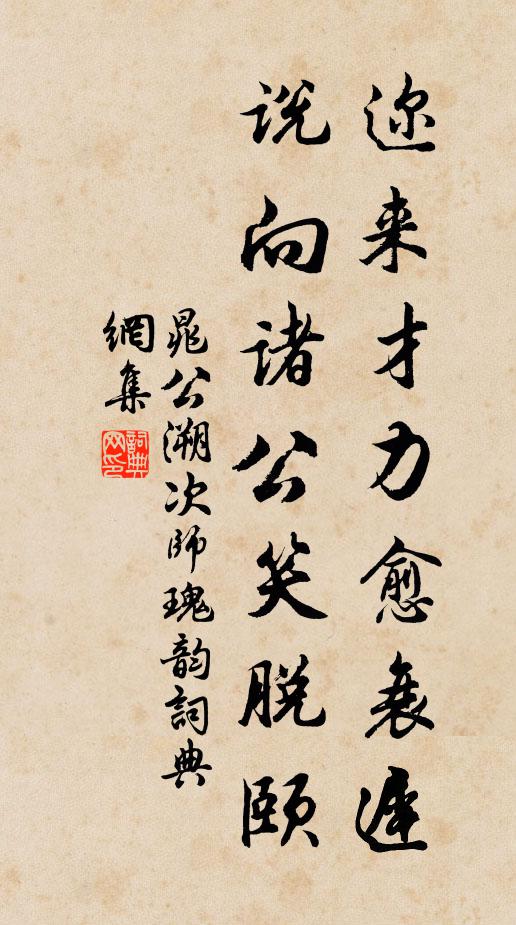 迩来才力愈衰遲
说向诸公笑脱颐
晁公溯次师瑰韵詞典
網集
詞典网印